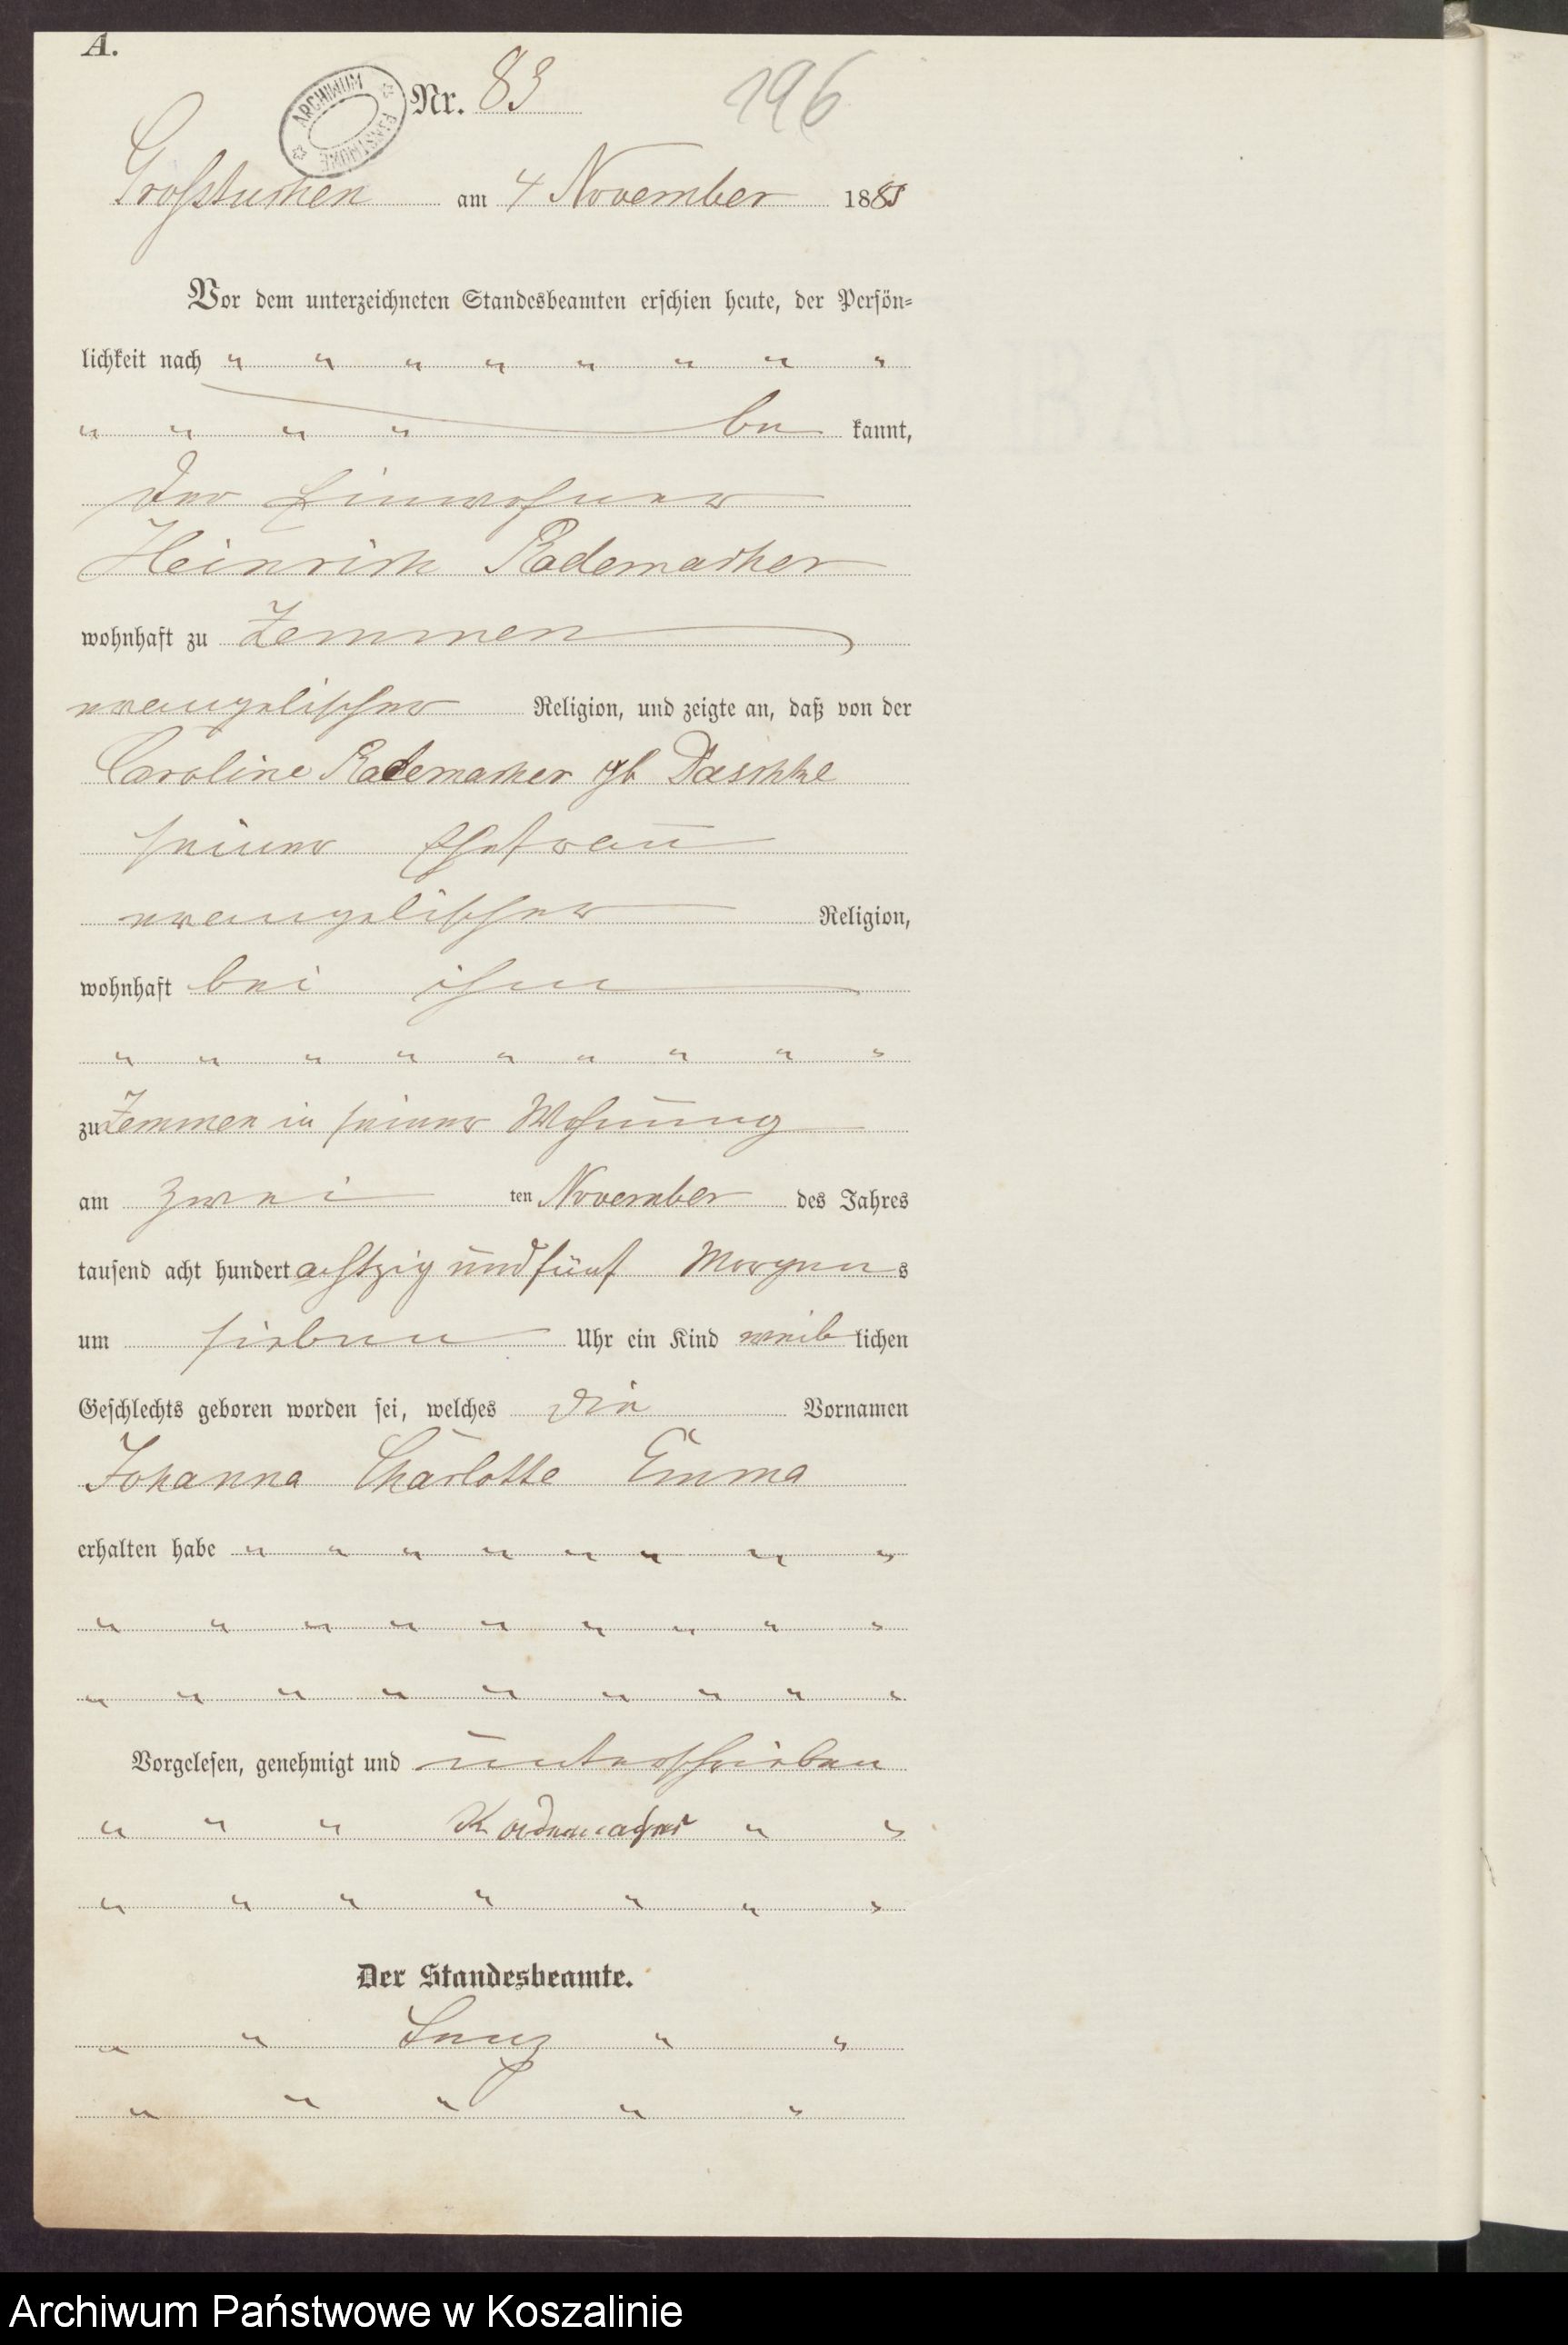 A.
ARCHIWUM PAŃSTWOWE
Nr. 83
196
Großtuchen am 4 November 1885
Vor dem unterzeichneten Standesbeamten erschien heute, der Persön-
lichkeit nach " " " " " " " "
" " " " be kannt,
der Einwohner
Heinrich Rademacher
wohnhaft zu Zemmen
evangelischer Religion, und zeigte an, daß von der
Caroline Rademacher gb Paschke
seiner Ehefrau
evangelischer Religion,
wohnhaft bei ihm
" " " " " " " " "
zu Zemmen in seiner Wohnung
am zwei ten November des Jahres
tausend acht hundert achtzig und fünf Morgens
um sieben Uhr ein Kind weib lichen
Geschlechts geboren worden sei, welches die Vornamen
Johanna Charlotte Emma
erhalten habe " " " " " " " "
" " " " " " " " "
" " " " " " " " "
Vorgelesen, genehmigt und unterschrieben
" " " Rademacher " "
" " " " " " "
Der Standesbeamte.
" " " "
" " " " "
Archiwum Państwowe w Koszalinie